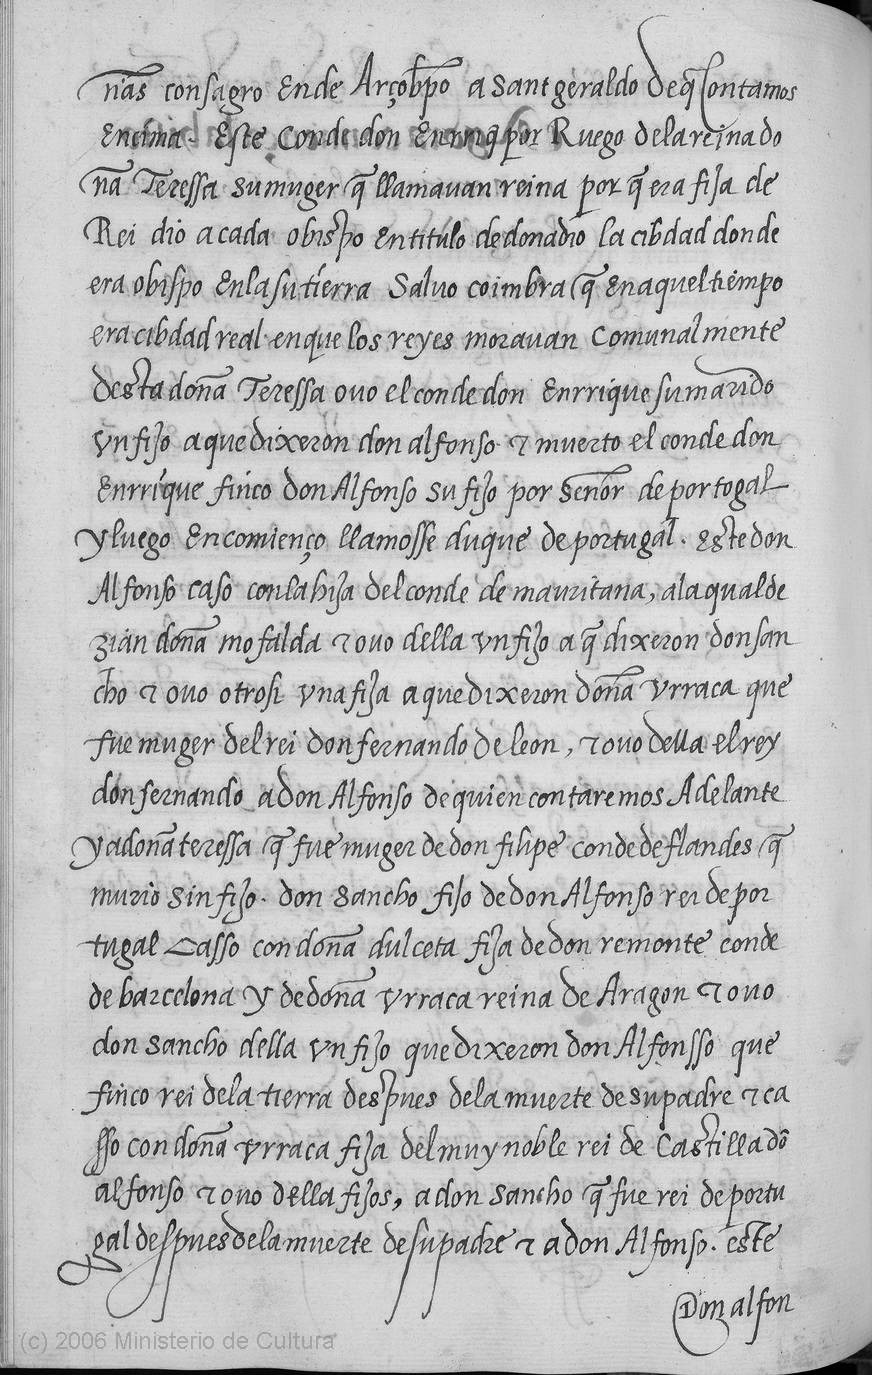 n̄as consagro Ende Arçob̄po a sant geraldo de q̄ Contamos
Encima. Este Conde don Enrriq̄ por Ruego dela reina do
n̄a Teressa su muger q̄ llamauan reina por q̄ era fija de
Rei dio a cada obispo en titulo de donadio la cibdad donde
era obispo En la su tierra Saluo coimbra q̄ En aquel tiempo
era cibdad real en que los reyes morauan Comunalmente
desta don̄a Teressa ouo el conde don Enrrique su marido
vn fijo a que dixeron don alfonso. τ muerto el conde don
Enrrique finco don Alfonso su fijo por Sen̄or de portogal
y luego En comienço llamosse duque de portugal. Este don
Alfonso caso con la hija del conde de mauritana, a la qual de
zian don̄a mofalda τ ouo della vn fijo a q̄ dixeron don san
cho τ ouo otrosi vna fija a que dixeron don̄a vrraca que
fue muger del rei don fernando de leon, τ ouo della el rey
don fernando a don Alfonso de quien contaremos Adelante
y a don̄a teressa q̄ fue muger de don filipe conde de flandes q̄
murio sin fijo. don Sancho fijo de don Alfonso rei de por
tugal Casso con don̄a dulceta fija de don remonte conde
de barcelona y de don̄a vrraca reina de Aragon τ ouo
don Sancho della vn fijo que dixeron don Alfonsso que
finco rei dela tierra despues dela muerte de su padre τ ca
sso con don̄a vrraca fija del muy noble rei de Castilla dō
alfonso τ ouo della fijos, a don Sancho q̄ fue rei de portu
gal despues dela muerte de su padre τ a don Alfonso. este
Don alfon
(c) 2006 Ministerio de Cultura